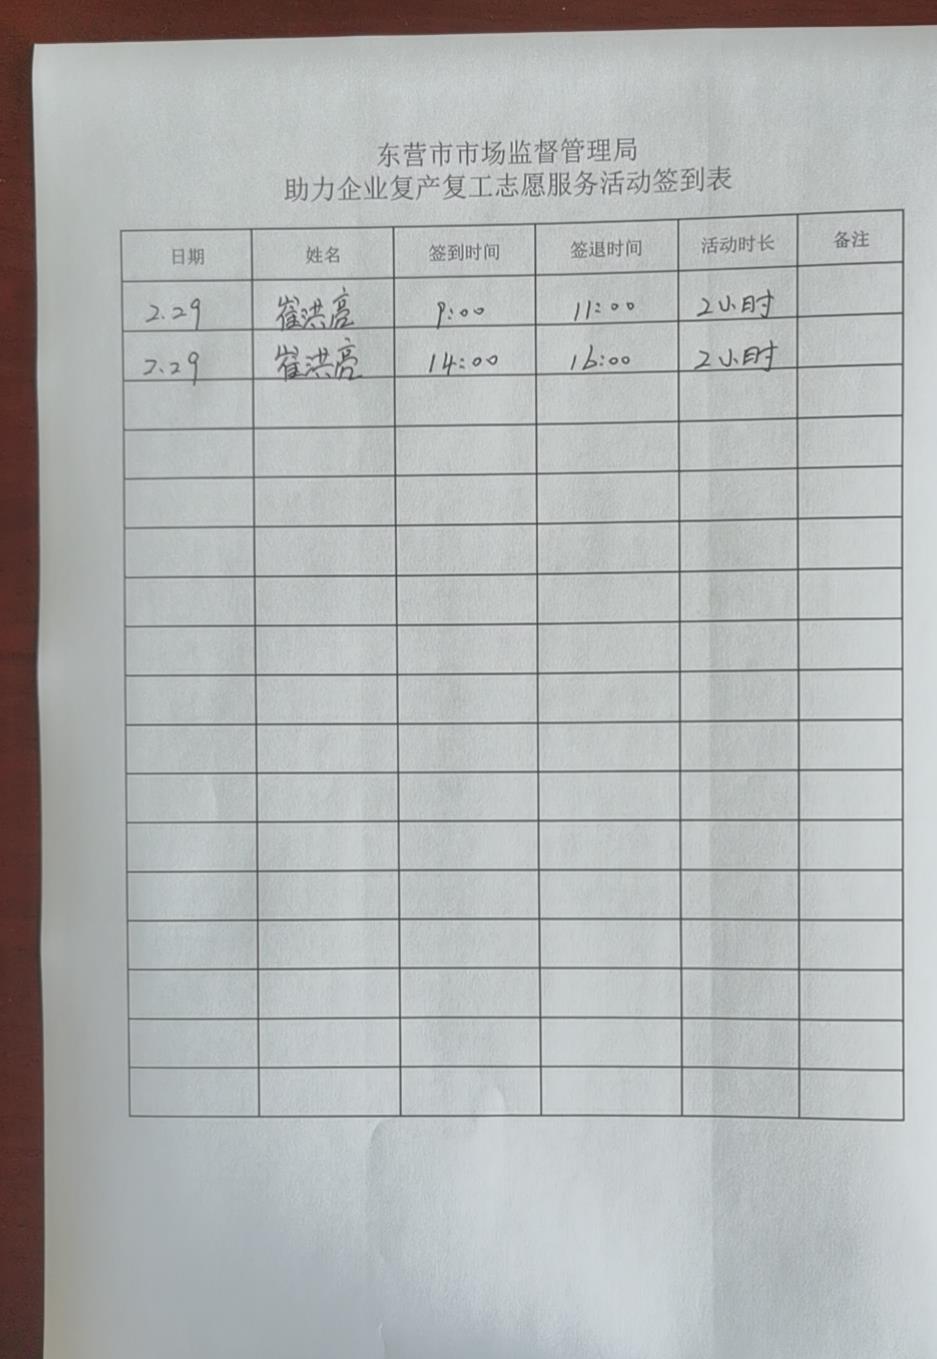 东营市市场监督管理局
助力企业复产复工志愿服务活动签到表
日期 姓名 签到时间 签退时间 活动时长 备注
2.29 崔洪亮 9:00 11:00 2小时
2.29 崔洪亮 14:00 16:00 2小时